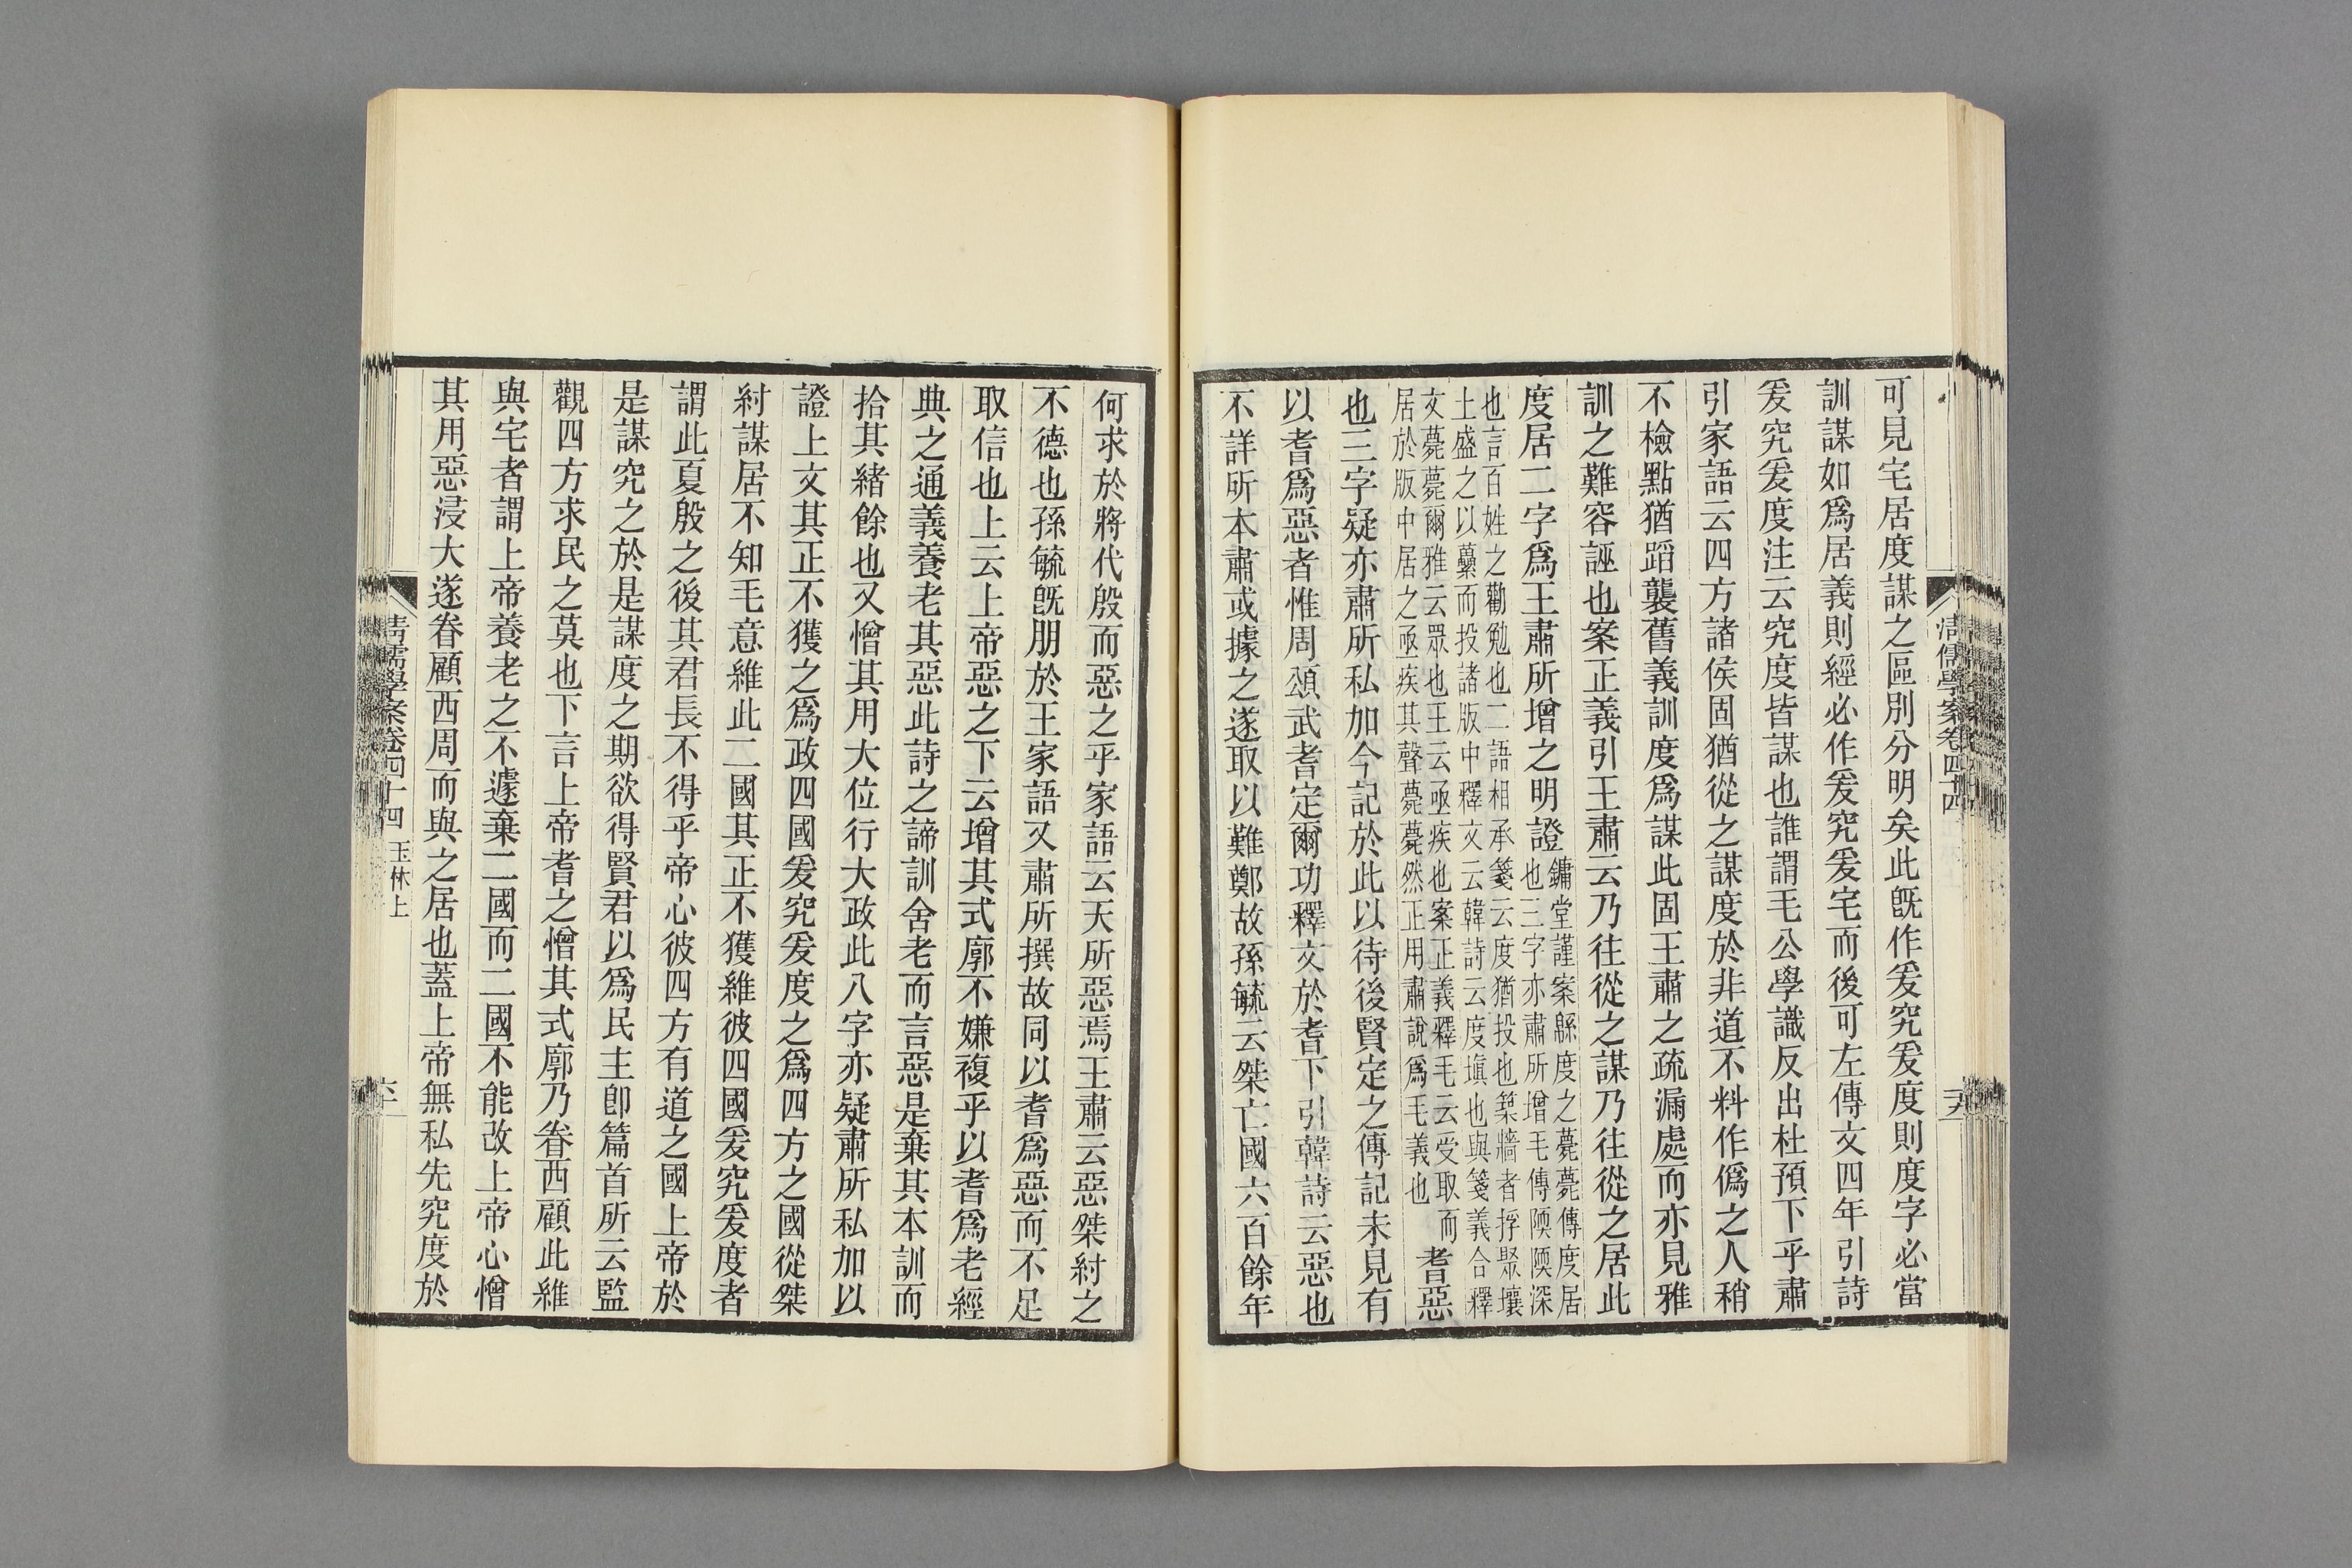 可見宅居度謀之區別分明矣此旣作爰究爰度則度字必當
訓謀如爲居義則經必作爰究爰宅而後可左傳文四年引詩
爰究爰度注云究度皆謀也誰謂毛公學識反出杜預下乎肅
引家語云四方諸侯固猶從之謀度於非道不料作僞之人稍
不檢點猶蹈襲舊義訓度爲謀此固王肅之疏漏處而亦見雅
訓之難容誣也案正義引王肅云乃往從之謀乃往從之居此
度居二字爲王肅所增之明證
鏞堂謹案緜度之薨薨傳度居
也三字亦肅所增毛傳陾陾深
也言百姓之勸勉也二語相承箋云度猶投也築牆者捊聚壤
土盛之以虆而投諸版中釋文云韓詩云度塡也與箋義合釋
文薨薨爾雅云眾也王云亟疾也案正義釋毛云受取而
居於版中居之亟疾其聲薨薨然正用肅說爲毛義也
耆惡
也三字疑亦肅所私加今記於此以待後賢定之傳記未見有
以耆爲惡者惟周頌武耆定爾功釋文於耆下引韓詩云惡也
不詳所本肅或據之遂取以難鄭故孫毓云桀亡國六百餘年
清儒學案卷四十四
何求於將代殷而惡之乎家語云天所惡焉王肅云惡桀紂之
不德也孫毓旣朋於王家語又肅所撰故同以耆爲惡而不足
取信也上云上帝惡之下云增其式廓不嫌複乎以耆爲老經
典之通義養老其惡此詩之諦訓舍老而言惡是棄其本訓而
拾其緒餘也又憎其用大位行大政此八字亦疑肅所私加以
證上文其正不獲之爲政四國爰究爰度之爲四方之國從桀
紂謀居不知毛意維此二國其正不獲維彼四國爰究爰度者
謂此夏殷之後其君長不得乎帝心彼四方有道之國上帝於
是謀究之於是謀度之期欲得賢君以爲民主卽篇首所云監
觀四方求民之莫也下言上帝耆之憎其式廓乃眷西顧此維
與宅者謂上帝養老之不遽棄二國而二國不能改上帝心憎
其用惡浸大遂眷顧西周而與之居也蓋上帝無私先究度於
清儒學案卷四十四 玉林上